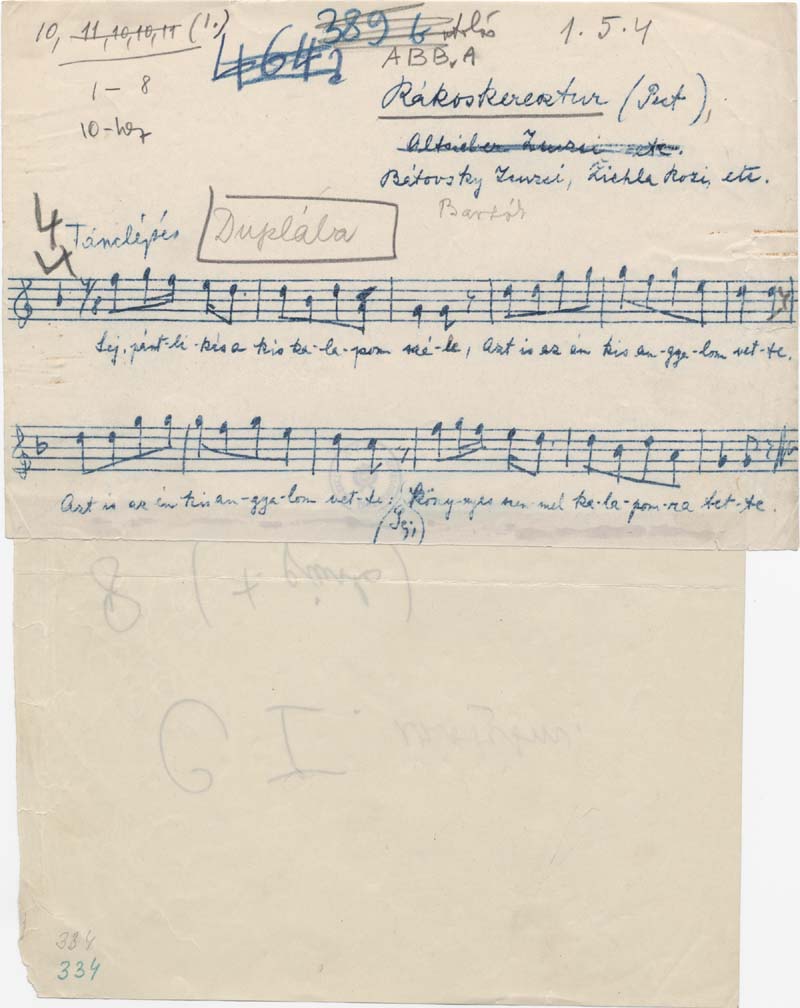 10, 11, 10, 10, 11 (1.)
1 – 8
10-hez
464
389 b utolsó
A B Bv A
1.5.4
Rákoskeresztur (Pest),
Zsuzsi etc.
Bétovsky Zsuzsi, Ziehla Rozi, etc.
Bartók
4
4
Tánclépés
Duplába
4/8
Sej, pánt-li-kás a kis ka-la-pom szé-le, Azt is az én kis an-gya-lom vet-te.
Azt is az én kis an-gya-lom vet-te: Köny-nyes szem-mel ka-la-pom-ra tet-te.
(Sej,)
8
I
384
334